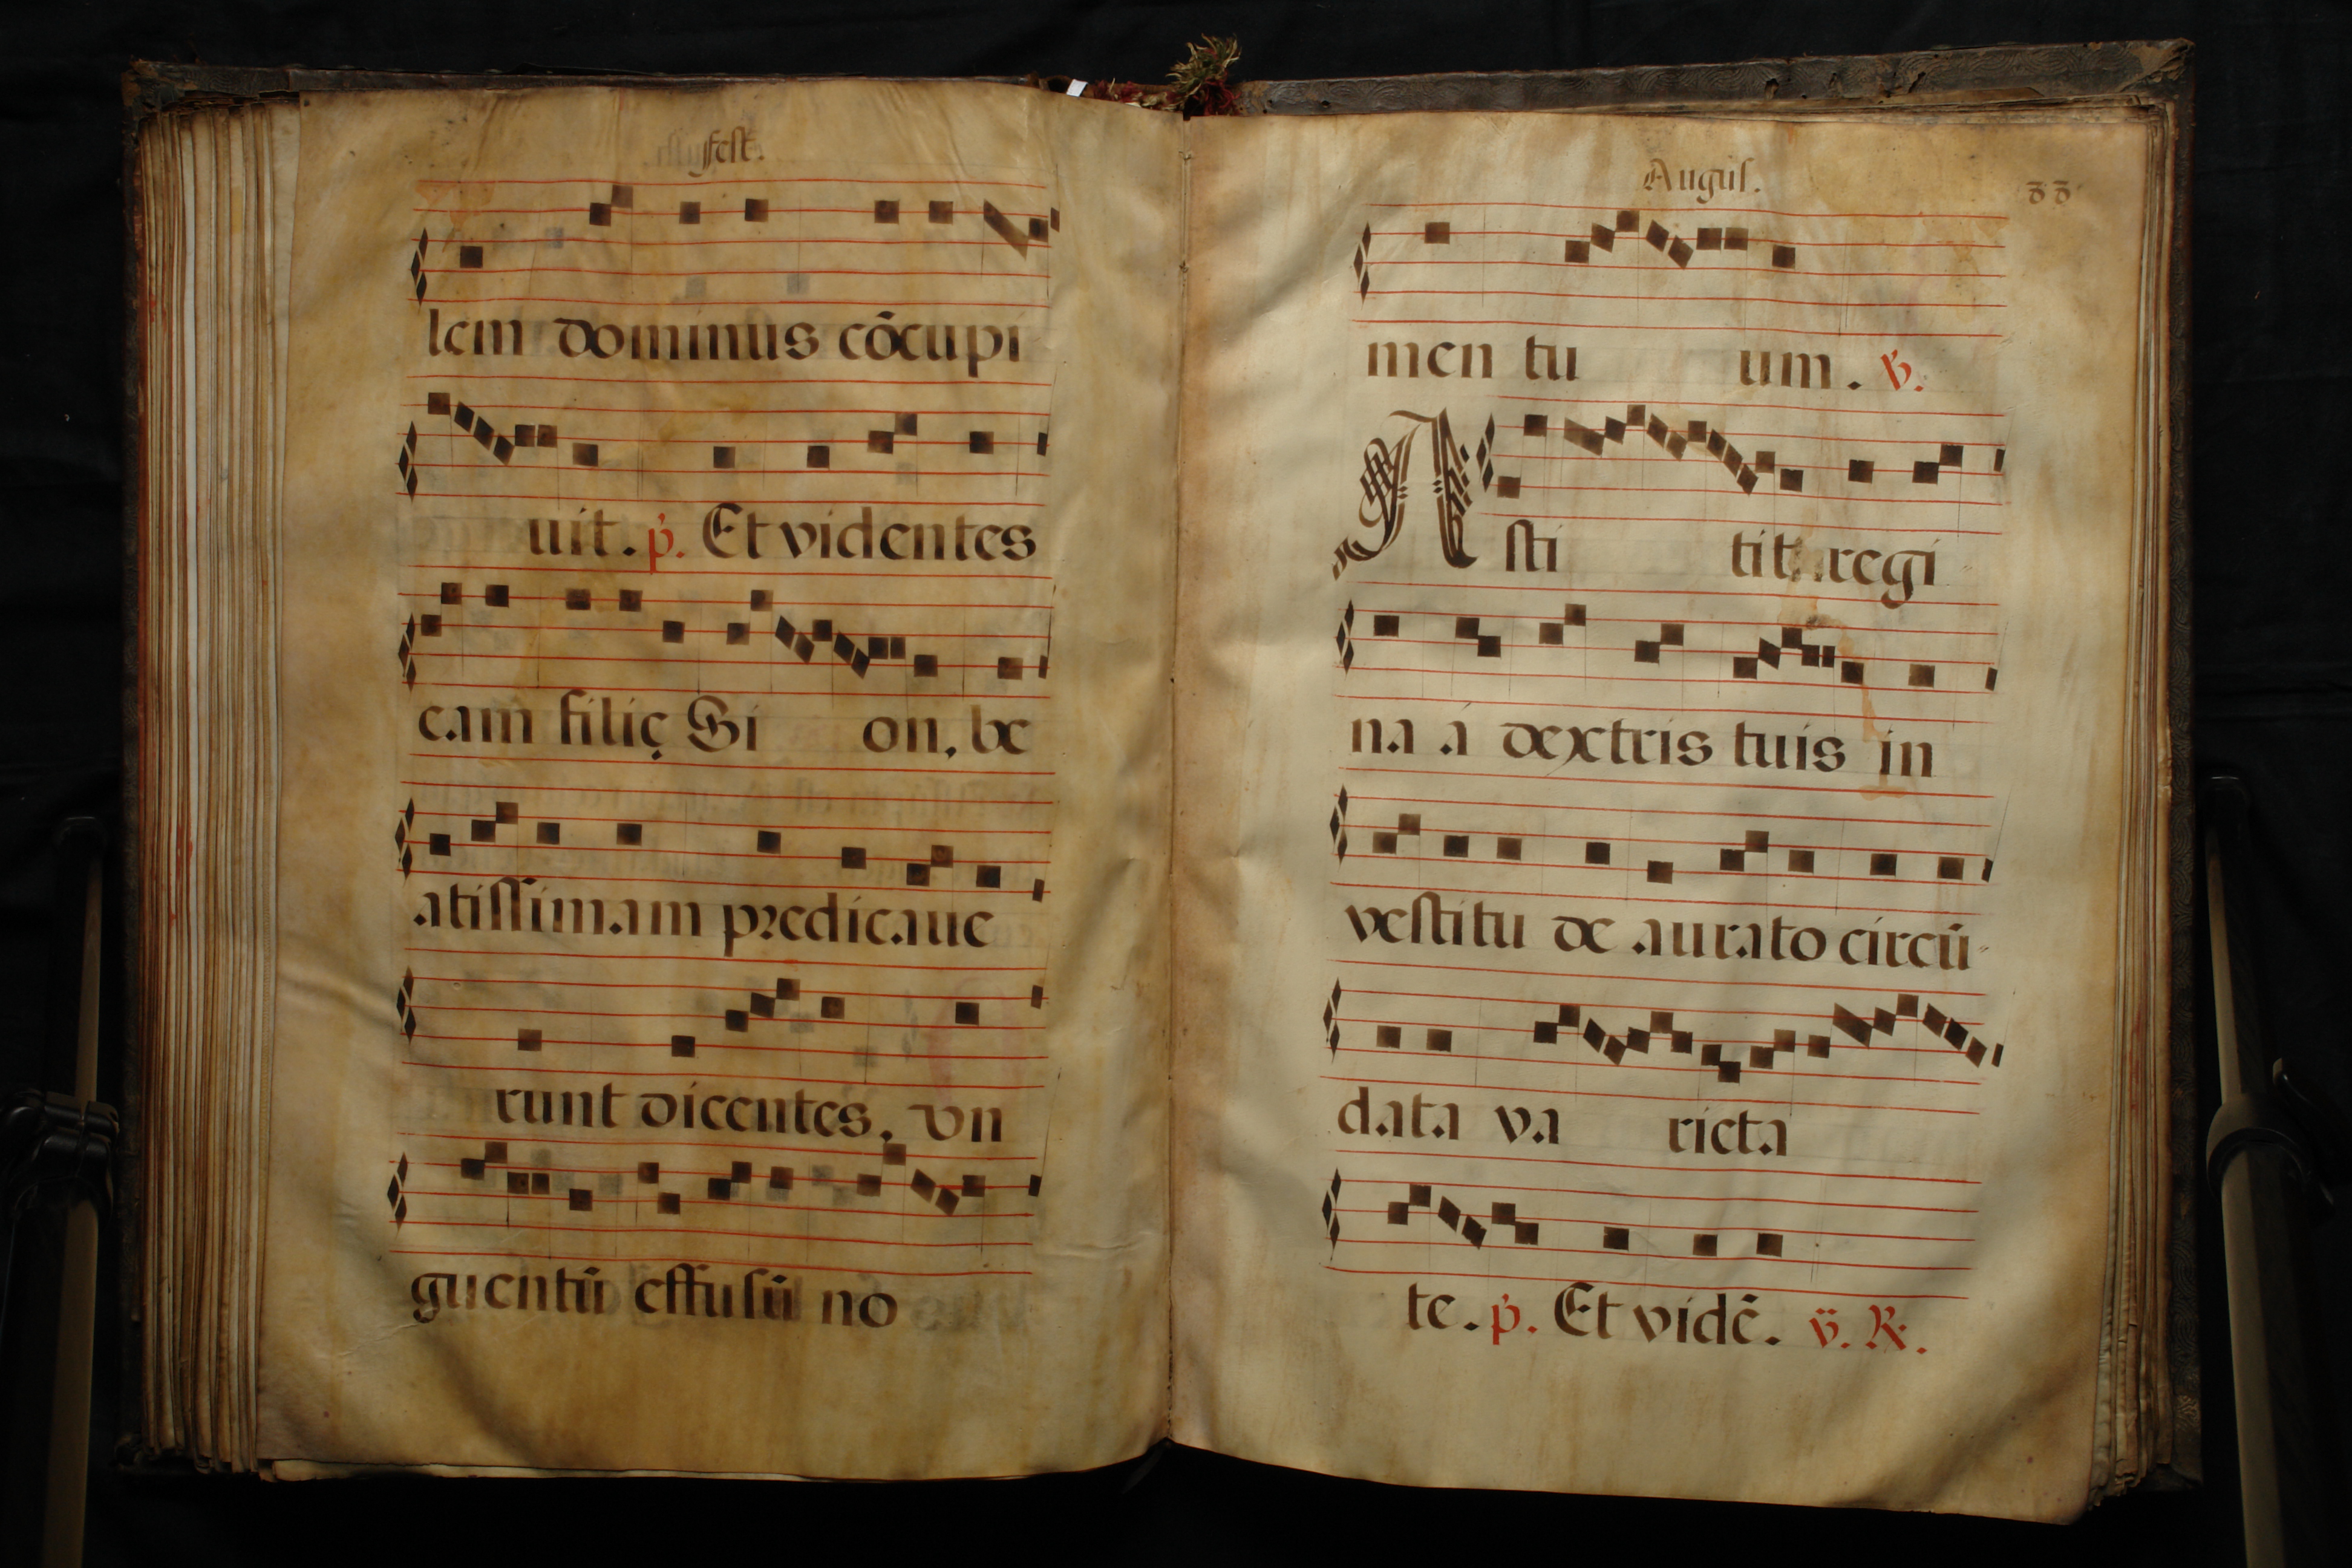 fest.
lem dominus cōcupi
uit. p̄. Et videntes
eam filię Si on, be
atissimam predicaue
runt dicentes, vn
guentū effusū no
Augus.
88
men tu um. v̄.
Asti tit regi
na á dextris tuis in
vestitu de aurato circū-
data va rieta
te. p̄. Et vidē. v̄. R.